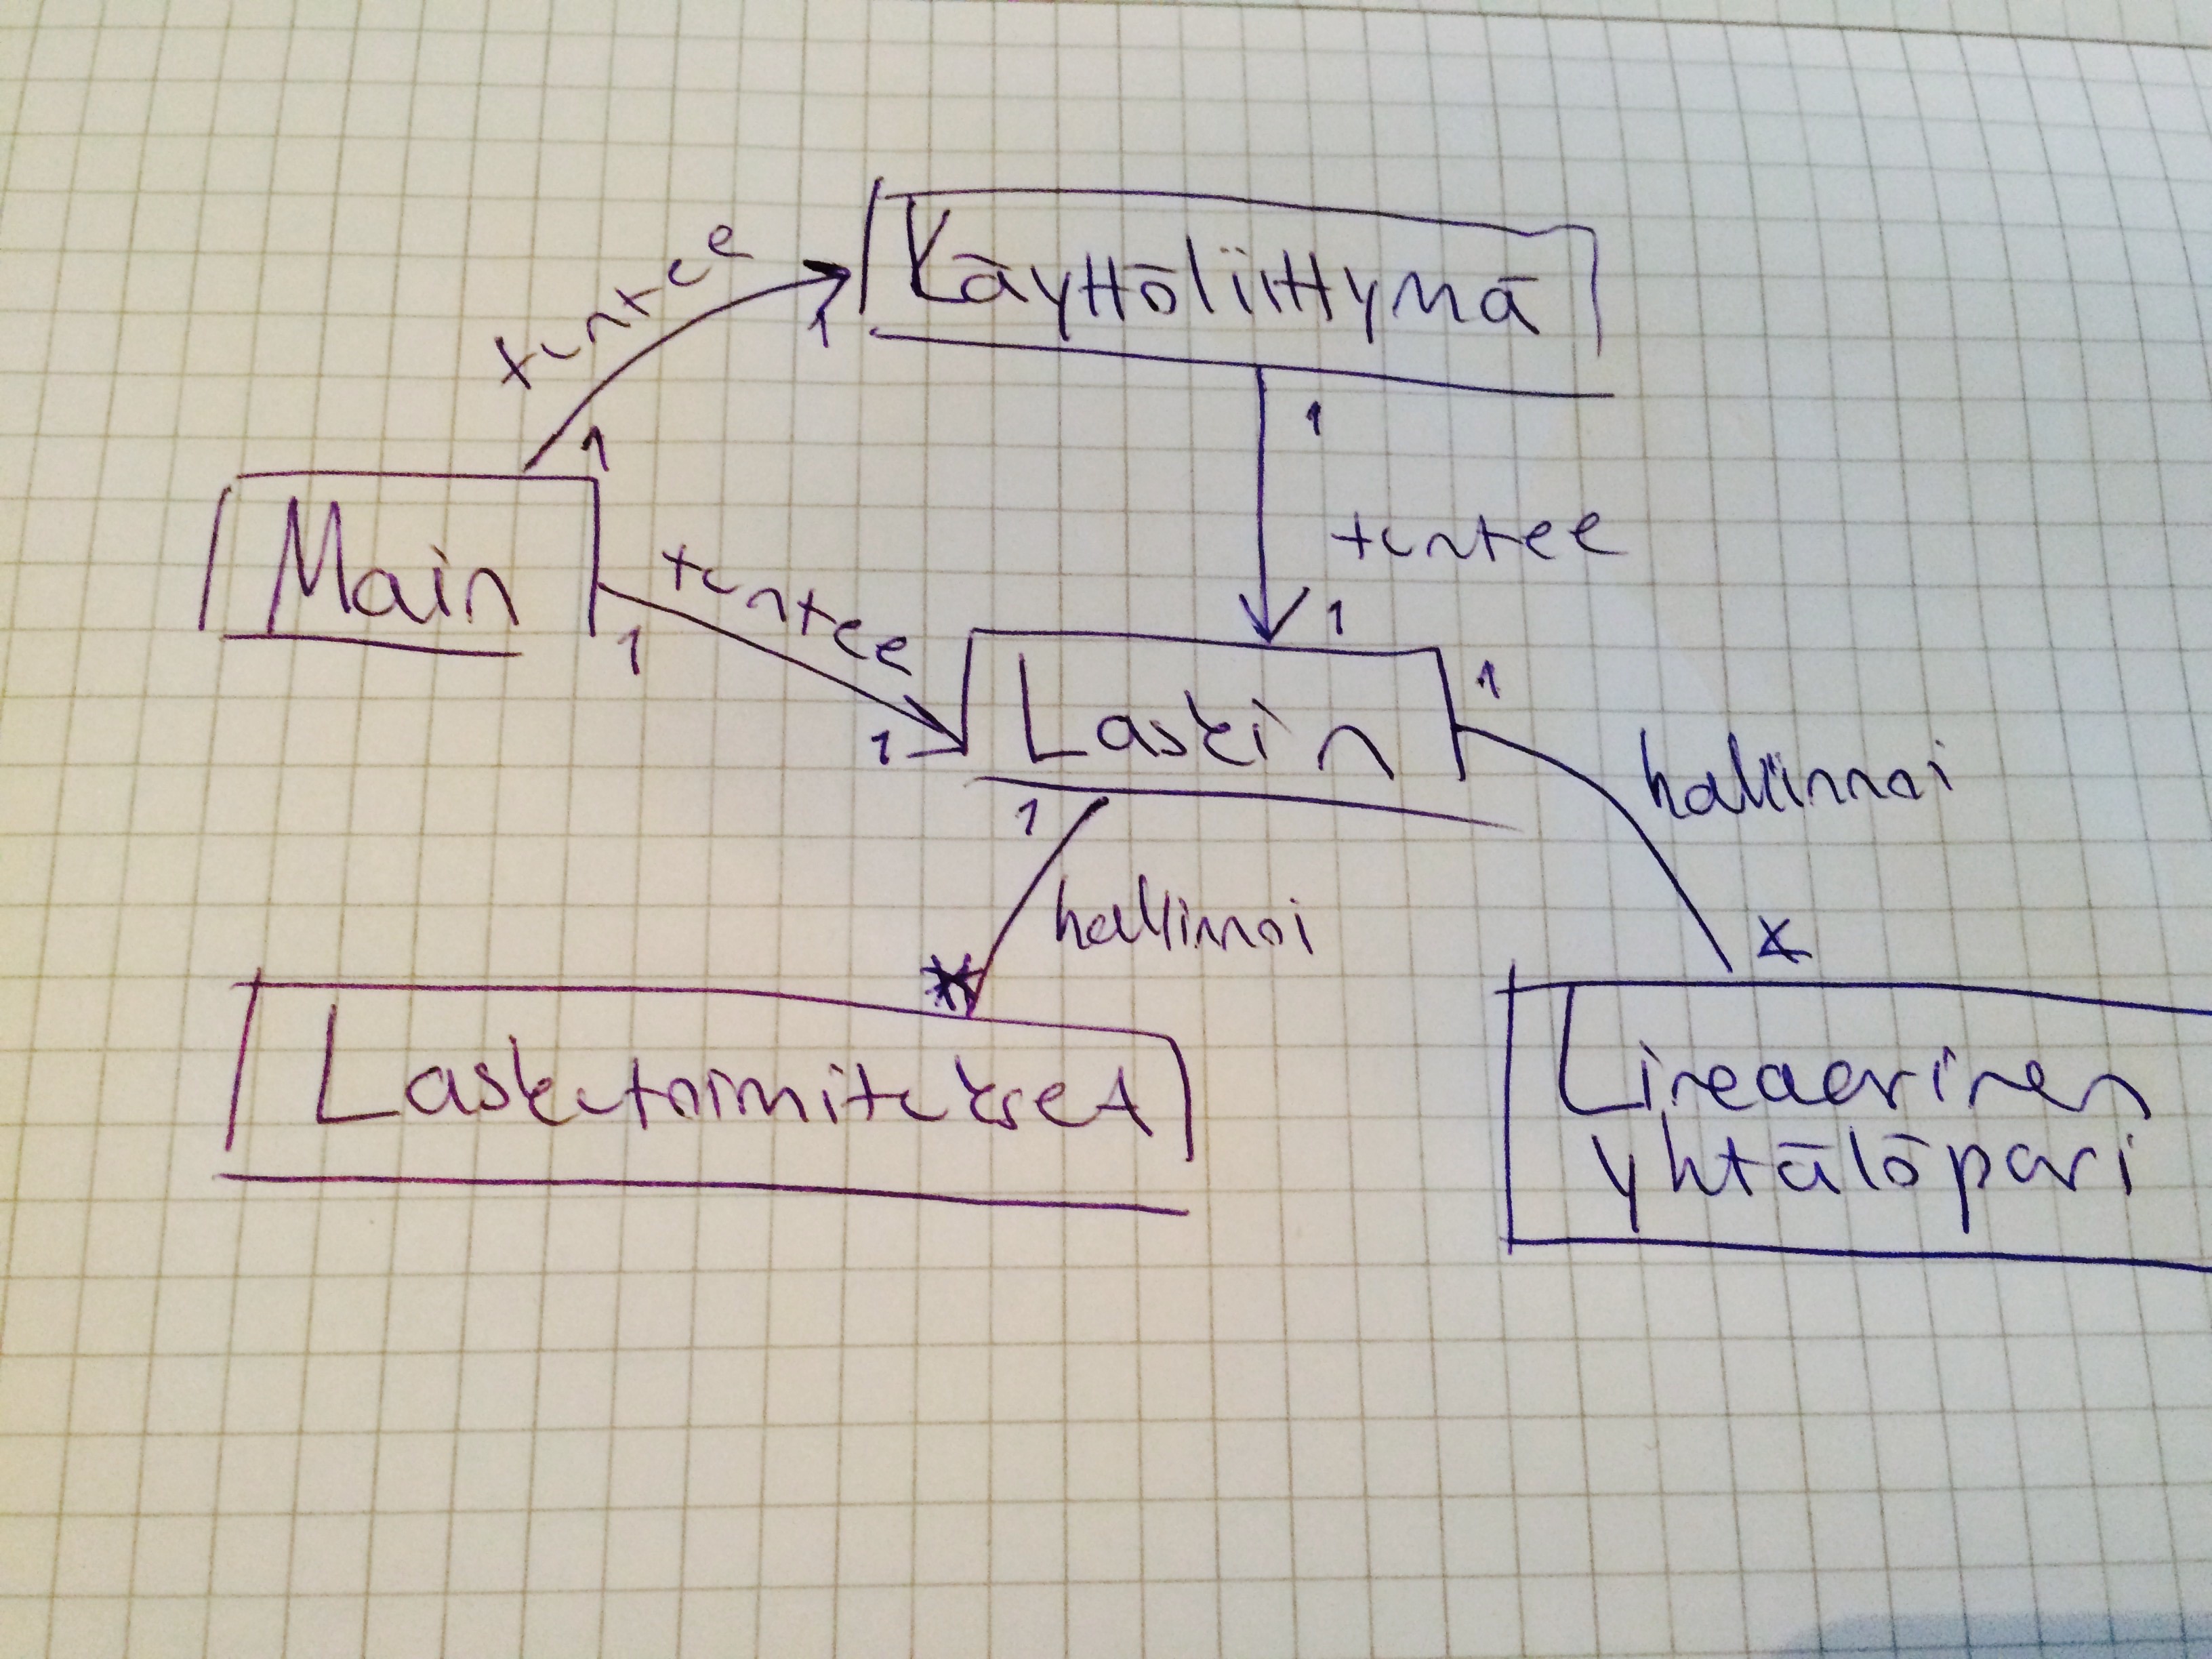 Käyttöliittymä
tuntee
1
1
1
Main
tuntee
tuntee
1
1
1
1
Laskin
1
hallinnoi
1
hallinnoi
*
*
Laskutoimitukset
Lineaarinen
yhtälöpari